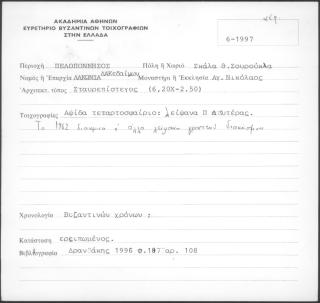 ΑΚΑΔΗΜΙΑ ΑΘΗΝΩΝ
ΕΥΡΕΤΗΡΙΟ ΒΥΖΑΝΤΙΝΩΝ ΤΟΙΧΟΓΡΑΦΙΩΝ
ΣΤΗΝ ΕΛΛΑΔΑ
6-1997
Περιοχή ΠΕΛΟΠΟΝΝΗΣΟΣ Πόλη ή Χωριό Σκάλα θ.Σουρούκλα
Λακεδαίμων
Νομός ή Ἐπαρχία ΛΑΚΩΝΙΑ Μοναστήρι ή Ἐκκλησία Αγ.Νικόλαος
Ἀρχιτεκτ. τύπος Σταυρεπίστεγος (6,20Χ-2.50)
Τοιχογραφίες Αψίδα τεταρτοσφαίριο: λείψανα Π Δευτέρας.
Το 1982 ἄλλα λείψανα γραπτοῦ διακόσμου
Χρονολογία Βυζαντινών χρόνων :
Κατάσταση ερειπωμένος.
Βιβλιογραφία Δρανδάκης 1996 σ.187 αρ. 108